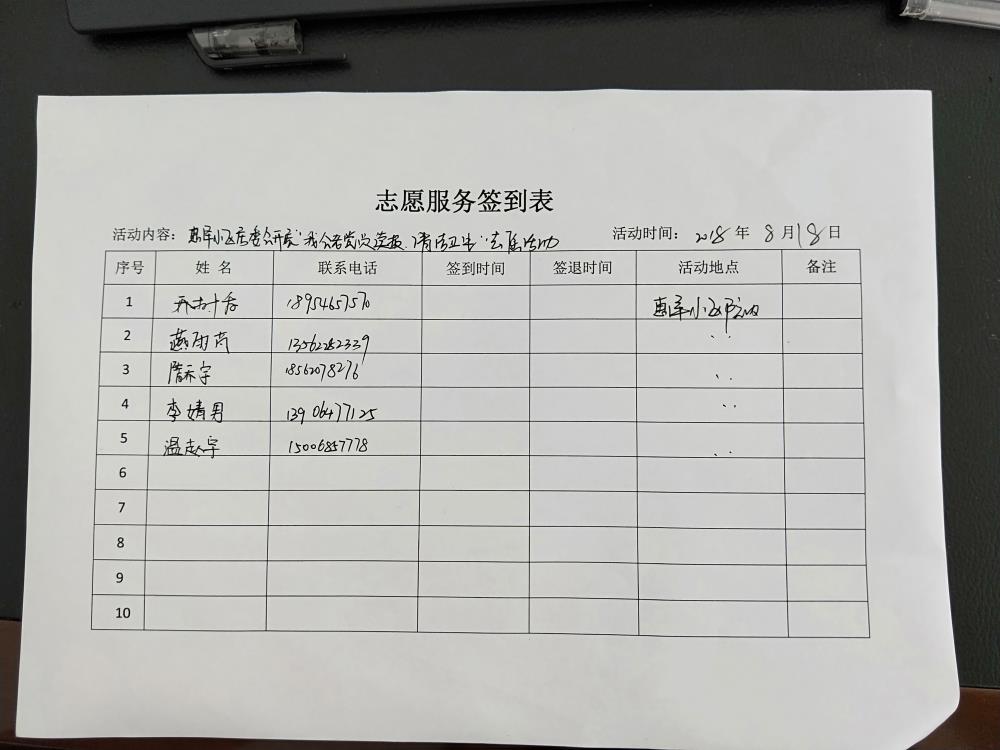 志愿服务签到表
活动内容：惠泽小区居委会开展"我为老党员读报、清洁卫生"志愿活动 活动时间：2018年8月18日
序号 姓名 联系电话 签到时间 签退时间 活动地点 备注
1 18954657570 惠泽小区
2 燕雨芮 13562282339 〃
3 隋禾宇 18562078276 〃
4 李婧男 13906477125 〃
5 温赵宇 15006857778 〃
6
7
8
9
10